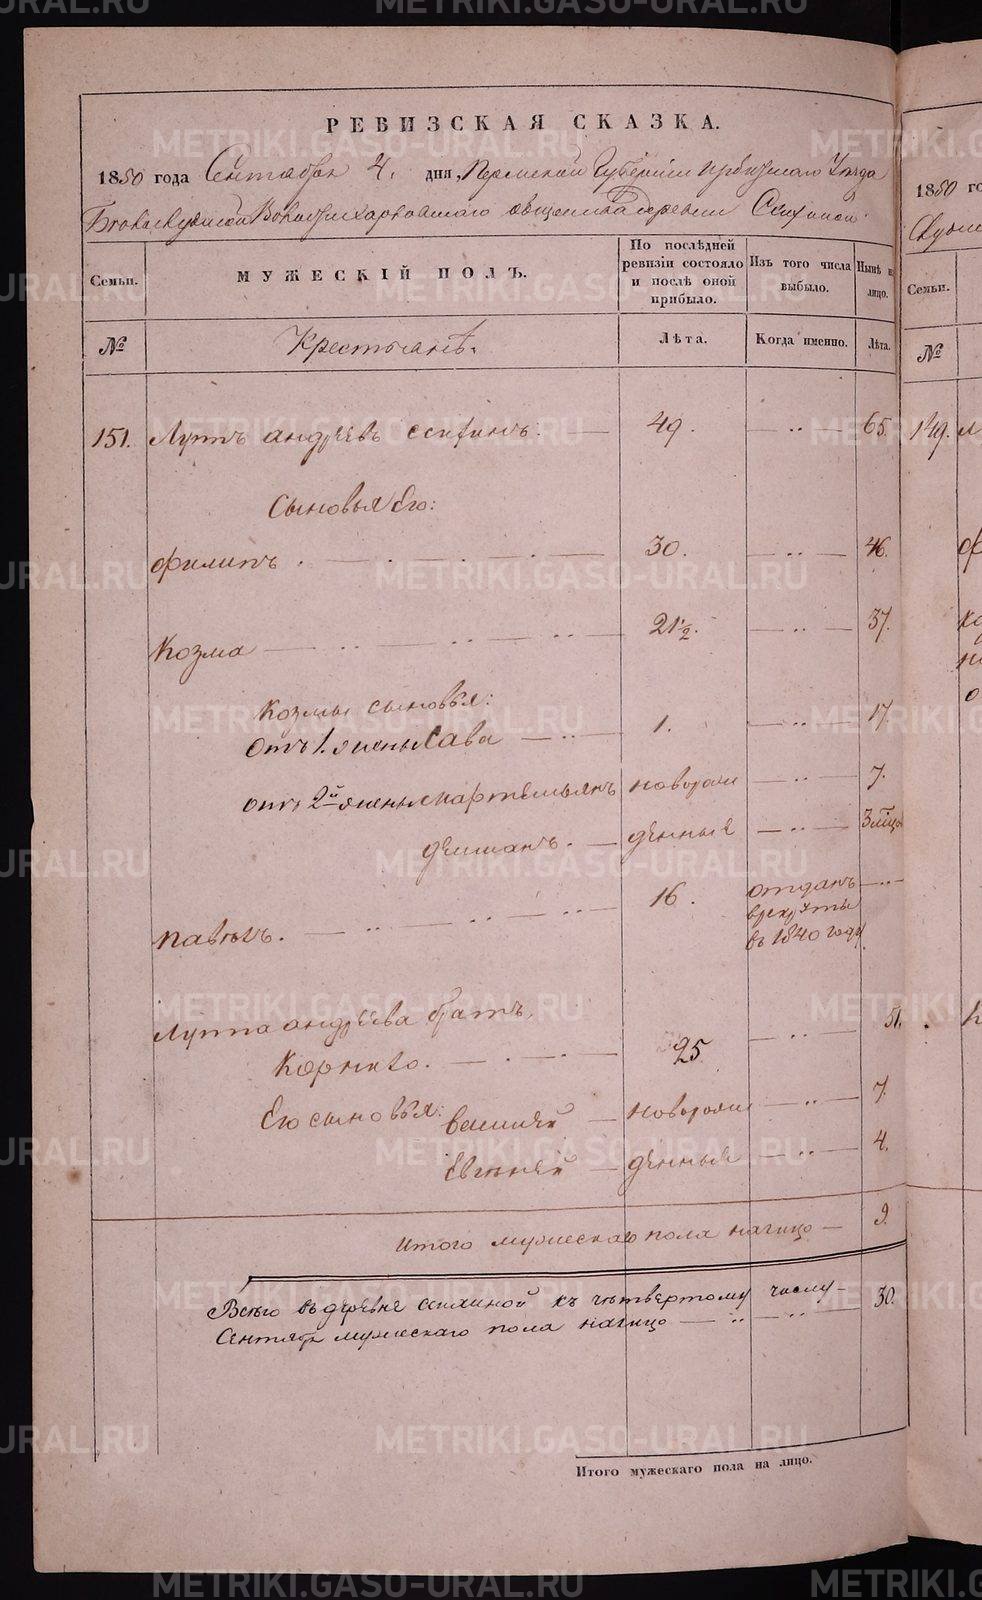 РЕВИЗСКАЯ СКАЗКА.
1850 года Сентября 4. дня, Пермской Губернии Ирбитскаго Уезда
Волости Харловскаго общества деревни
Семьи. МУЖЕСКІЙ ПОЛЪ. По послѣдней ревизіи состояло и послѣ оной прибыло. Изъ того числа выбыло. Нынѣ на лицо.
№ Крестьянѣ. Лѣта. Когда именно. Лѣта.
151. Луппъ андреевъ 49. 65.
Сыновья Его:
филипъ. 30. 46.
Козма 21½. 37.
Козмы сыновья:
отъ 1. жены Сава 1. 17.
отъ 2й жены новорож 7.
демианъ. денные 3 мѣсц.
павелъ. 16. отданъ
в рекруты
въ 1840 году
Луппа андреева братъ,
Корнило. 35. 51.
Его сыновья: василей новорож 7.
Евгеней денные 4.
Итого мужескаго пола налицо — 9.
Всего въ деревне къ четвертому числу
Сентября мужескаго пола налицо 30.
Итого мужескаго пола на лицо.
1850 го
Семьи.
№
149.
METRIKI.GASO-URAL.RU